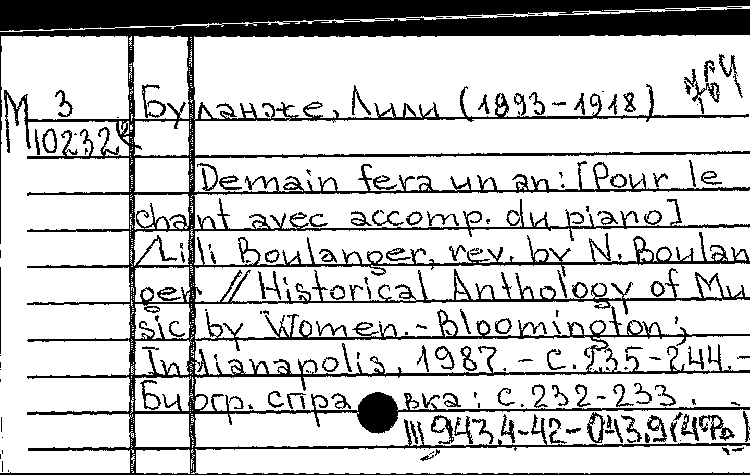 764
М 3 Буланже, Лили (1893-1918)
10232
Demain fera un an: [Pour le
chant avec accomp. du piano]
/Lili Boulanger, rev. by N. Boulan
ger // Historical Anthology of Mu
sic by Women.- Bloomington;
Indianapolis, 1987. - С.235-244.-
Биогр. справка: с.232-233.
III 943.4-42-043.9(4Фр.)